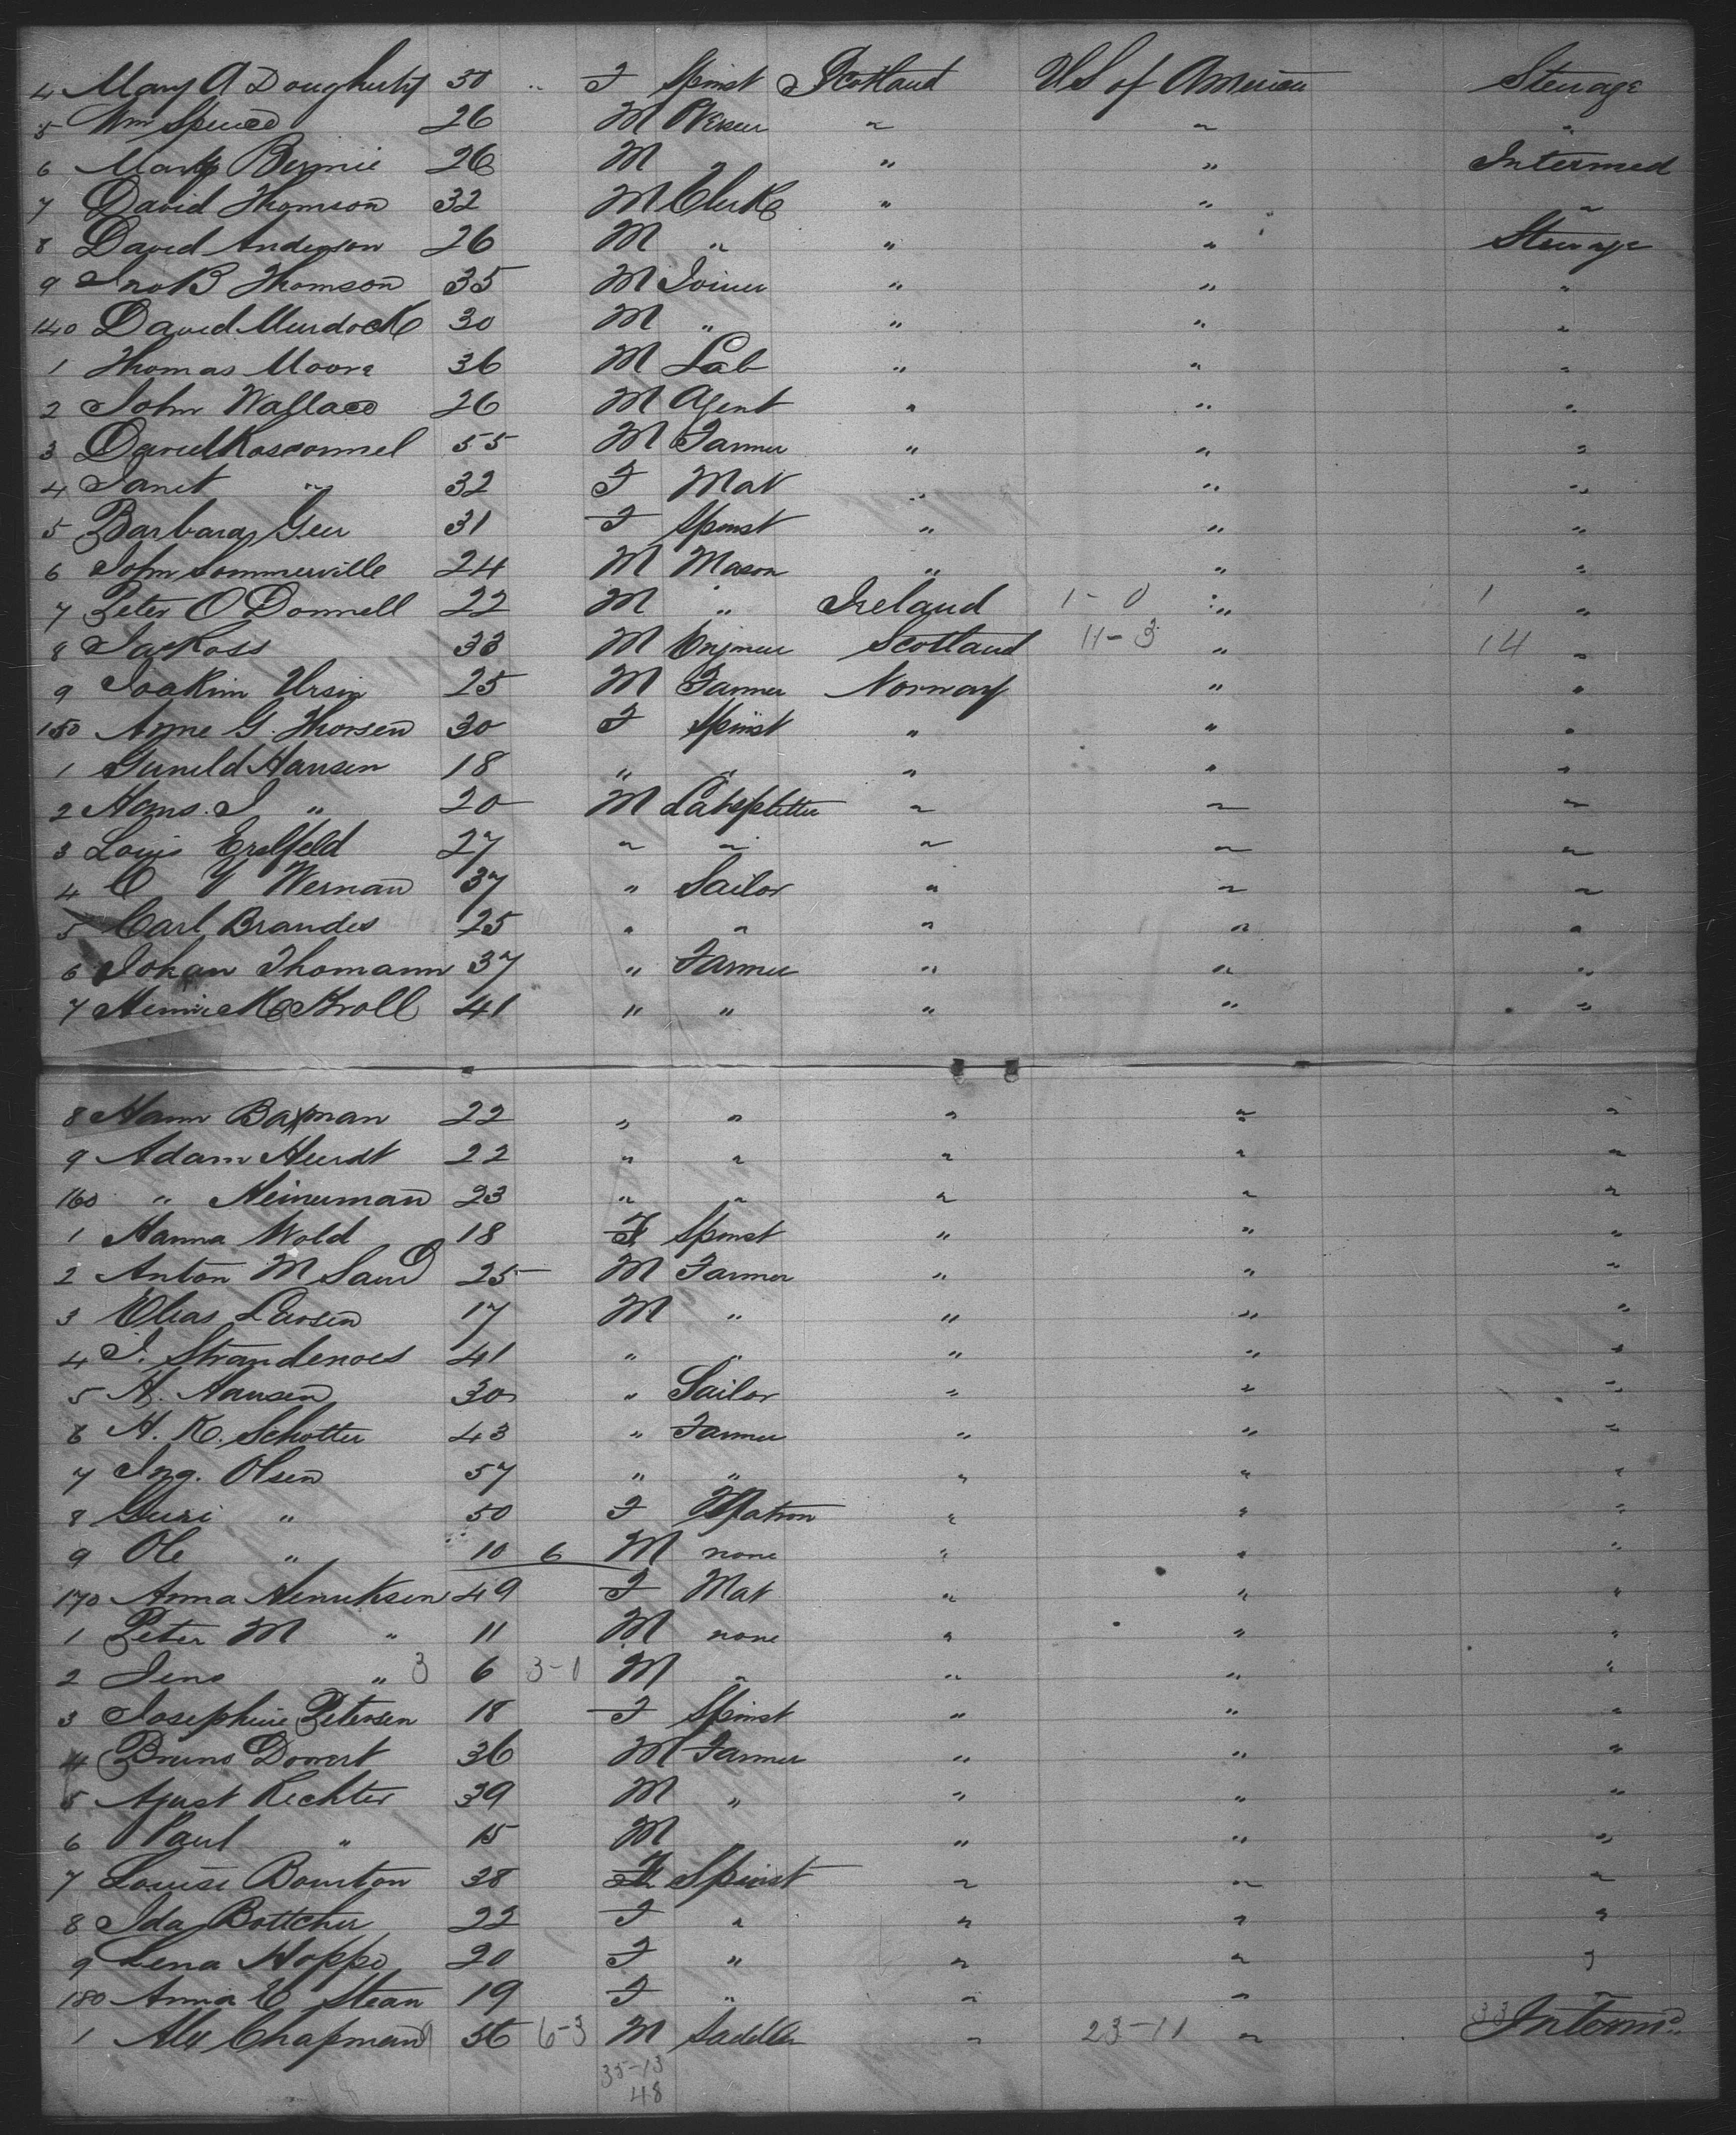 4 Mary A Dougherty 30 " F Spinst Scotland U S of America Steerage
5 Wm Spence 26 M " " "
6 Mary Bernie 26 M " " Intermed
7 David Thomson 32 M Clerk " " "
8 David Anderson 26 M " " " Steerage
9 Jno B Thomson 35 M Joiner " " "
140 David Murdock 30 M " " " "
1 Thomas Moore 36 M Lab " " "
2 John Wallace 26 M Agent " " "
3 David 55 M Farmer " " "
4 Janet " 32 F Mat " " "
5 Barbara Geer 31 F Spinst " " "
6 John Sommerville 24 M Mason " " "
7 Peter O'Donnell 22 M " Ireland 1-0 " 1 "
8 Jas Ross 33 M Engineer Scotland 11-3 " 14 "
9 Joakim Ursin 25 M Farmer Norway " "
150 Anne G. Thorsen 30 F Spinst " " "
1 Gunild Hansen 18 " " " " "
2 Hans. J " 20 M " " "
3 Louis 27 " " " " "
4 C Y Wernan 37 " Sailor " " "
5 Carl Brandes 25 " " " " "
6 Johan Thomann 37 " Farmer " " "
7 Heinrick Kroll 41 " " " " "
8 Hann Bauman 22 " " " " "
9 Adam Heerdt 22 " " " " "
160 " Heineman 23 " " " " "
1 Hanna Wold 18 F Spinst " " "
2 Anton M Saur 25 M Farmer " " "
3 Elias Larsen 17 M " " " "
4 J. Strandenoes 41 " " " " "
5 H. Hansen 30 " Sailor " " "
6 H. K. Schotter 43 " Farmer " " "
7 Ing. Olsen 57 " " " " "
8 Guri " 50 F Matron " " "
9 Ole " 10 6 M none " " "
170 Anna Henriksen 49 F Mat " " "
1 Peter M " 11 M none " " "
2 Jens " 3 6 3-1 M " " " "
3 Josephine Petersen 18 F Spinst " " "
4 Bruno Donert 36 M Farmer " " "
5 Agust Rechter 39 M " " " "
6 Paul " 15 M " " "
7 Louise Bourton 38 F Spinst " " "
8 Ida Bottcher 22 F " " " "
9 Lena Hoppe 20 F " " " "
180 Anna E Stean 19 F " " " "
1 Alex Chapman 36 6-3 M Saddler " 23-11 " 33 Interm "
35-13
48